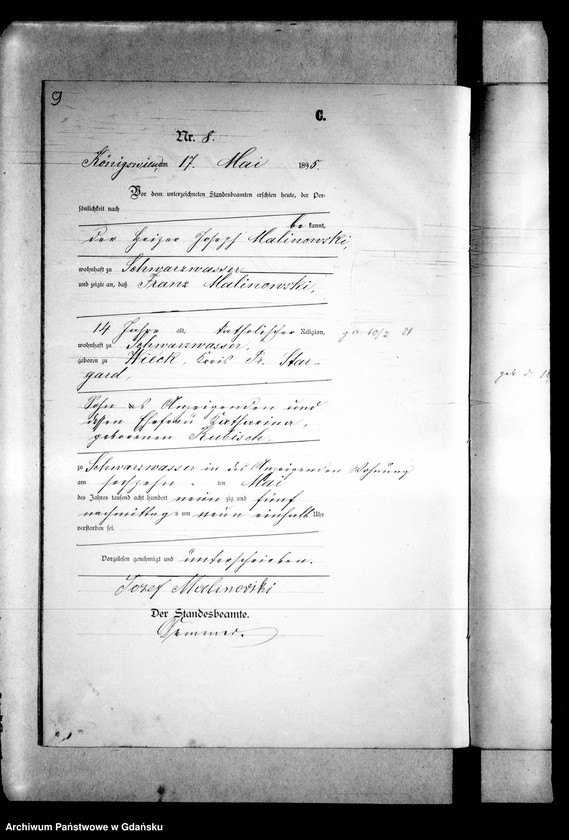 9
C.
Nr. 8.
Königswiese am 17. Mai 1895.
Vor dem unterzeichneten Standesbeamten erschien heute, der Per-
sönlichkeit nach
be kannt,
der Heizer Joseph Malinowski,
wohnhaft zu Schwarzwasser
und zeigte an, daß Franz Malinowski,
14 Jahre alt, katholischer Religion, geb 10/2 81
wohnhaft zu Schwarzwasser,
geboren zu Wieck, Kreis Pr. Star-
gard,
Sohn des Anzeigenden und
dessen Ehefrau Katharina,
geborenen Kubisch,
zu Schwarzwasser in des Anzeigenden Wohnung
am sechzehn - ten Mai
des Jahres tausend acht hundert neunzig und fünf
nachmittags um neun einhalb Uhr
verstorben sei.
Vorgelesen genehmigt und unterschrieben.
Jozef Malinoski
Der Standesbeamte.
Archiwum Państwowe w Gdańsku